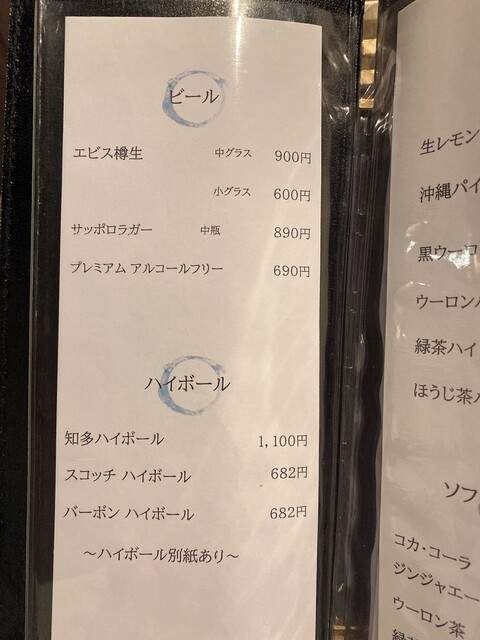 ビール
エビス樽生 中グラス 900円
小グラス 600円
サッポロラガー 中瓶 890円
プレミアム アルコールフリー 690円
ハイボール
知多ハイボール 1,100円
スコッチ ハイボール 682円
バーボン ハイボール 682円
〜ハイボール別紙あり〜
生レモン
沖縄パイ
黒ウーロ
ウーロン
緑茶ハイ
ほうじ茶
ソフ
コカ・コーラ
ジンジャエー
ウーロン茶
緑